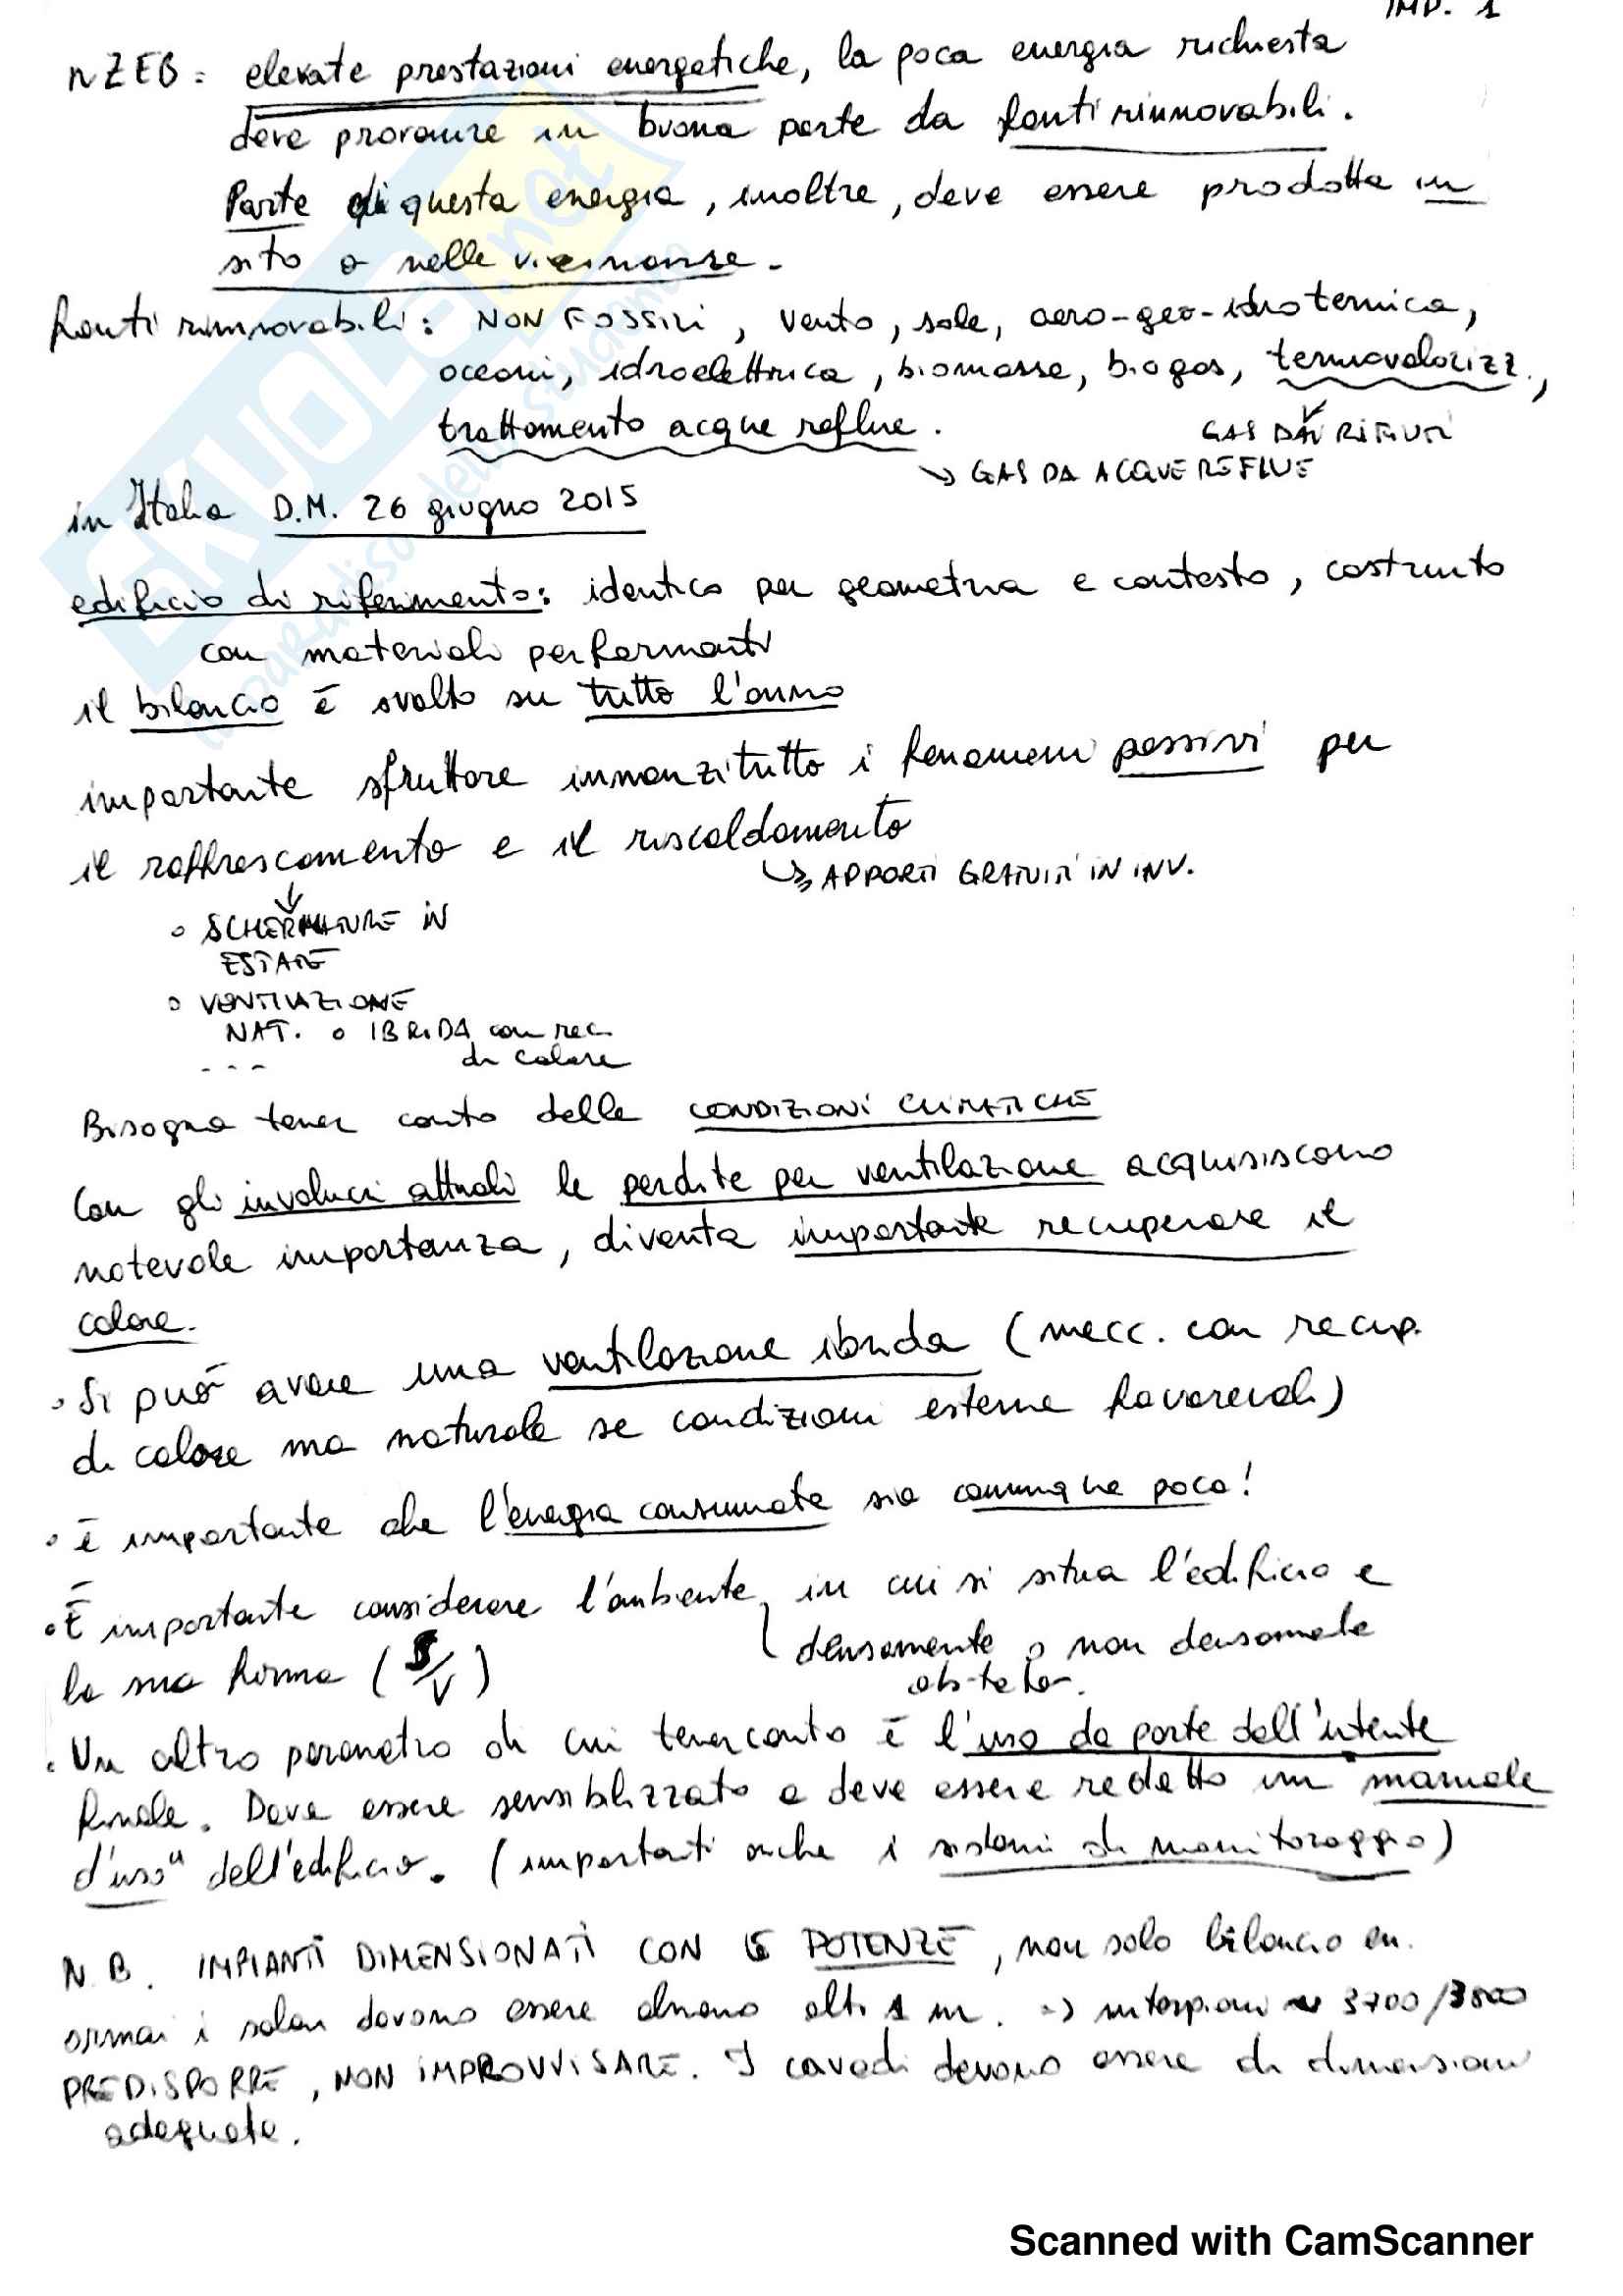 IMP. 1
nZEB: elevate prestazioni energetiche, la poca energia richiesta
deve provenire in buona parte da fonti rinnovabili.
Parte di questa energia, inoltre, deve essere prodotta in
sito o nelle vicinanze.
fonti rinnovabili: NON FOSSILI, vento, sole, aero-geo-idrotermica,
oceani, idroelettrica, biomasse, biogas, termovalorizz.,
trattamento acque reflue.
GAS DAI RIFIUTI
→ GAS DA ACQUE REFLUE
in Italia D.M. 26 giugno 2015
edificio di riferimento: identico per geometria e contesto, costruito
con materiali performanti
il bilancio è svolto su tutto l'anno
importante sfruttare innanzitutto i fenomeni passivi per
il raffrescamento e il riscaldamento
↳ APPORTI GRATUITI IN INV.
◦ SCHERMATURE IN
ESTATE
◦ VENTILAZIONE
NAT. o IBRIDA con rec.
di calore
---
Bisogna tener conto delle CONDIZIONI CLIMATICHE
Con gli involucri attuali le perdite per ventilazione acquisiscono
notevole importanza, diventa importante recuperare il
calore.
• Si può avere una ventilazione ibrida (mecc. con recup.
di calore ma naturale se condizioni esterne favorevoli)
• è importante che l'energia consumata sia comunque poca!
• È importante considerare l'ambiente in cui si situa l'edificio e
densamente o non densamente
la sua forma (S/V)
• Un altro parametro di cui tener conto è l'uso da parte dell'utente
finale. Deve essere sensibilizzato e deve essere redatto un "manuale
d'uso" dell'edificio. (importanti anche i sistemi di monitoraggio)
N.B. IMPIANTI DIMENSIONATI CON le POTENZE, non solo bilancio en.
ormai i solai devono essere almeno alti 1 m. => interpiani ~ 3700/3800
PREDISPORRE, NON IMPROVVISARE. I cavedi devono essere di dimensioni
adeguate.
SKUOLA.net
Scanned with CamScanner